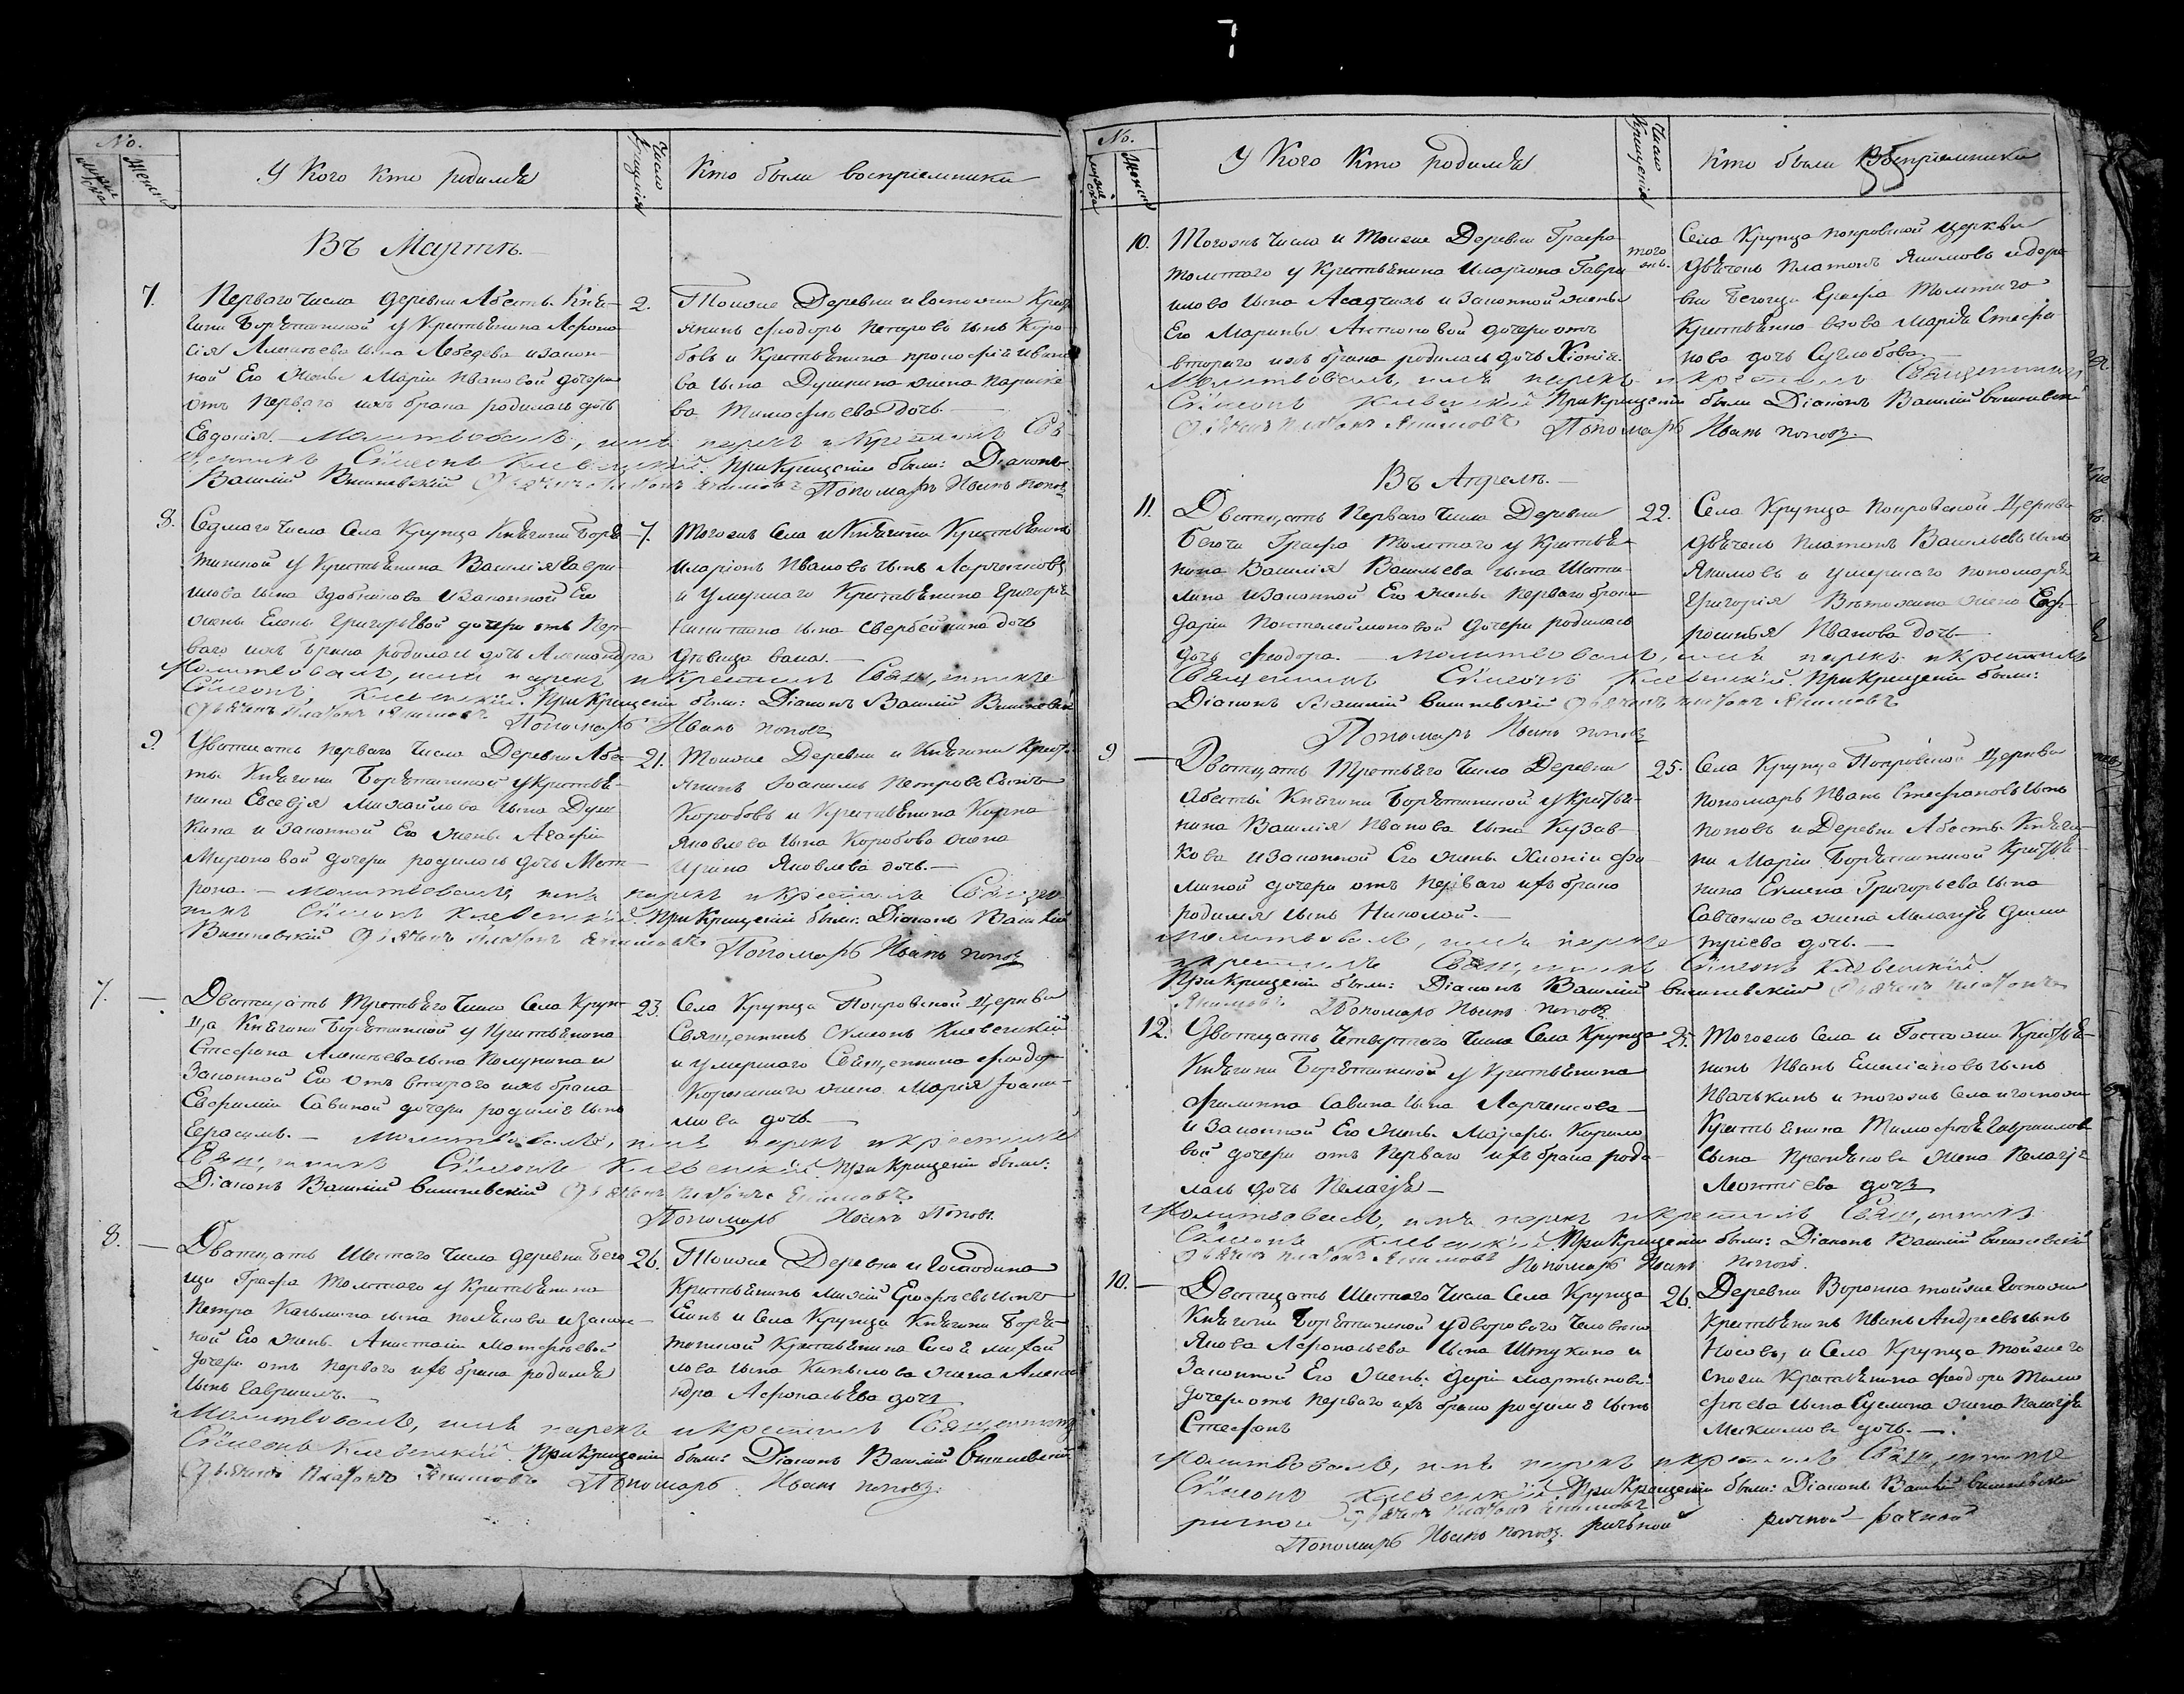 7
No.
Мужеска
Женска
У Кого Кто родился
Число Крещенія
Кто были восприемники
Въ Мартѣ.
7.
Перваго числа деревни Абесты Кня-
гини Борятинской у Крестьянина Афона-
сія Алексѣева сына Лебедева и закон-
ной Его жены Маріи Ивановой дочери
отъ перваго ихъ брака родилась дочь
Евдокія. — Молитвовалъ, имя нарекъ и крестилъ Свя-
щенникъ Сѵмеонъ Клевенскій. При Крещеніи были: Діаконъ
Василій Вишневскій Дьячекъ Платонъ Якимовъ Пономарь Иванъ Поповъ
2.
Тойже Деревни и Госпожи Крест-
янинъ Феодоръ Петровъ сынъ Коро-
бовъ и Крестьянина Прокофія Ивано-
ва сына Душкина жена Параске-
ва Тимофѣева дочь. —
8.
Седмаго числа Села Крупца Княгини Боря-
тинской у Крестьянина Василія Гаври-
лова сына и законной Его
жены Елены Григорьевой дочери отъ Пер-
ваго ихъ брака родилась дочь Александра
Молитвовалъ, имя нарекъ и Крестилъ Священникъ
Сѵмеонъ Клевенскій. При Крещеніи были: Діаконъ Василій Вишневскій
Дьячекъ Платонъ Якимовъ Пономарь Иванъ Поповъ
7.
Тогожъ Села и Княгини Крестьянинъ
Иларіонъ Ивановъ сынъ Ларченковъ
и умершаго Крестьянина Григорія
Никитина сына дочь
дѣвица —
9.
Двадцать перваго числа Деревни Абе-
сты Княгини Борятинской у Крестья-
нина Евсевія Михайлова сына Душ-
кина и законной Его жены Агафіи
Мироновой дочери родилась дочь Мат-
рона. — Молитвовалъ, имя нарекъ и крестилъ Священ-
никъ Сѵмеонъ Клевенскій. При Крещеніи были: Діаконъ Василій
Вишневскій Дьячекъ Платонъ Якимовъ Пономарь Иванъ Поповъ
21.
Тойже Деревни и Княгини Крест-
янинъ Іоакимъ Петровъ Сынъ
Коробовъ и Крестьянина Карпа
Яковлева сына Коробова жена
Ирина Яковлева дочь. —
7.
Двадцать Третьяго числа Села Круп-
ца Княгини Борятинской у Крестьянина
Стефана Алексѣева сына и
законной Его отъ втораго ихъ брака
Евфиміи Савиной дочери родился сынъ
Герасимъ. — Молитвовалъ, имя нарекъ и крестилъ
Священникъ Сѵмеонъ Клевенскій При Крещеніи были:
Діаконъ Василій Вишневскій Дьячекъ Платонъ Якимовъ
Пономарь Иванъ Поповъ.
23.
Села Крупца Покровской Церкви
Священникъ Симеонъ Клевенскій
и умершаго Священника Феодора
жена Марія Іоаки-
мова дочь. —
8.
Двадцать Шестаго числа деревни Бего-
щи Графа Толстаго у Крестьянина
Петра Казьмина сына Полякова и закон-
ной Его жены Анастасіи Матфѣевой
дочери отъ перваго ихъ брака родился
сынъ Гавріилъ.
Молитвовалъ, имя нарекъ и крестилъ Священникъ
Сѵмеонъ Клевенскій. При Крещеніи были: Діаконъ Василій Вишневскій
Дьячекъ Платонъ Якимовъ Пономарь Иванъ Поповъ.
26.
Тойже Деревни и Господина
Крестьянинъ сынъ
и Села Крупца Княгини Боря-
тинской Крестьянина Михай-
лова сына жена Алекса-
ндра Афонасьева дочь
No.
Мужеска
Женска
У Кого Кто родился
Число Крещенія
Кто были Восприемники
10.
Тогожъ числа и Тойже Деревни Графа
Толстаго у Крестьянина Иларіона Гаври-
лова сына и законной жены
Его Марины Антоновой дочери отъ
втораго ихъ брака родилась дочь Хіонія.
Молитвовалъ, имя нарекъ и крестилъ Священникъ
Сѵмеонъ Клевенскій При Крещеніи были Діаконъ Василій Вишневскій
Дьячекъ Платонъ Якимовъ Пономарь Иванъ Поповъ.
того жъ.
Села Крупца Покровской Церкви
дьячекъ Платонъ Якимовъ и дере-
вни Бегощи Графа Толстаго
Крестьянина вдова Марія Стефа-
нова дочь
Въ Апрелѣ. —
11.
Двадцать Перваго числа Деревни
Бегощи Графа Толстаго у Крестья-
нина Василія Васильева сына
и законной Его жены перваго брака
Даріи Понтелеймоновой дочери родилась
дочь Феодора. — Молитвовалъ, имя нарекъ и крестилъ
Священникъ Сѵмеонъ Клевенскій. При Крещеніи были:
Діаконъ Василій Вишневскій Дьячекъ Платонъ Якимовъ
Пономарь Иванъ Поповъ
22.
Села Крупца Покровской Церкви
дьячекъ Платонъ Васильевъ сынъ
Якимовъ и умершаго пономаря
Григорія жена Евф-
росинія Иванова дочь —
9
Двадцать Третьяго числа Деревни
Абесты Княгини Борятинской у Крестья-
нина Василія Иванова сына Кузав-
кова и законной Его жены Хионіи Фо-
миной дочери отъ перваго ихъ брака
родился сынъ Николай. —
Молитвовалъ, имя нарекъ
и крестилъ Священникъ Сѵмеонъ Клевенскій.
При Крещеніи были: Діаконъ Василій Вишневскій Дьячекъ Платонъ
Якимовъ Пономарь Иванъ Поповъ.
25.
Села Крупца Покровской Церкви
пономарь Иванъ Стефановъ сынъ
Поповъ и Деревни Абесты Княги-
ни Маріи Борятинской Крестья-
нина Григорьева сына
жена Меланія Дими-
тріева дочь. —
12.
Двадцать Четвертаго числа Села Крупца
Княгини Борятинской у Крестьянина
Филиппа Савина сына Ларченкова
и законной Его жены Марфы Кирило-
вой дочери отъ перваго ихъ брака роди-
лась дочь Пелагія —
Молитвовалъ, имя нарекъ и крестилъ Священникъ
Сѵмеонъ Клевенскій При Крещеніи были: Діаконъ Василій Вишневскій
Дьячекъ Платонъ Якимовъ Пономарь Иванъ Поповъ.
25.
Тогожъ Села и Госпожи Крестья-
нинъ Иванъ Емиліановъ сынъ
Ивачькинъ и тогожъ Села и госпожи
Крестьянина Тимофея Гаврилова
сына жена Пелагія
Леонтіева дочь
10.
Двадцать Шестаго числа Села Крупца
Княгини Борятинской у дворового человека
Якова Афонасьева сына Щукина и
законной Его жены Даріи Мартыновой
дочери отъ перваго ихъ брака родился сынъ
Стефанъ
Молитвовалъ, имя нарекъ и крестилъ Священникъ
Сѵмеонъ Клевенскій При Крещеніи были: Діаконъ Василій Вишневскій
Дьячекъ Платонъ Якимовъ
Пономарь Иванъ Поповъ.
26.
Деревни Воронка тойже Госпожи
Крестьянинъ Иванъ Андреевъ сынъ
Носовъ, и Села Крупца тойже го-
спожи Крестьянина Феодора Тимо-
фѣева сына жена Пелагія
Максимова дочь. —